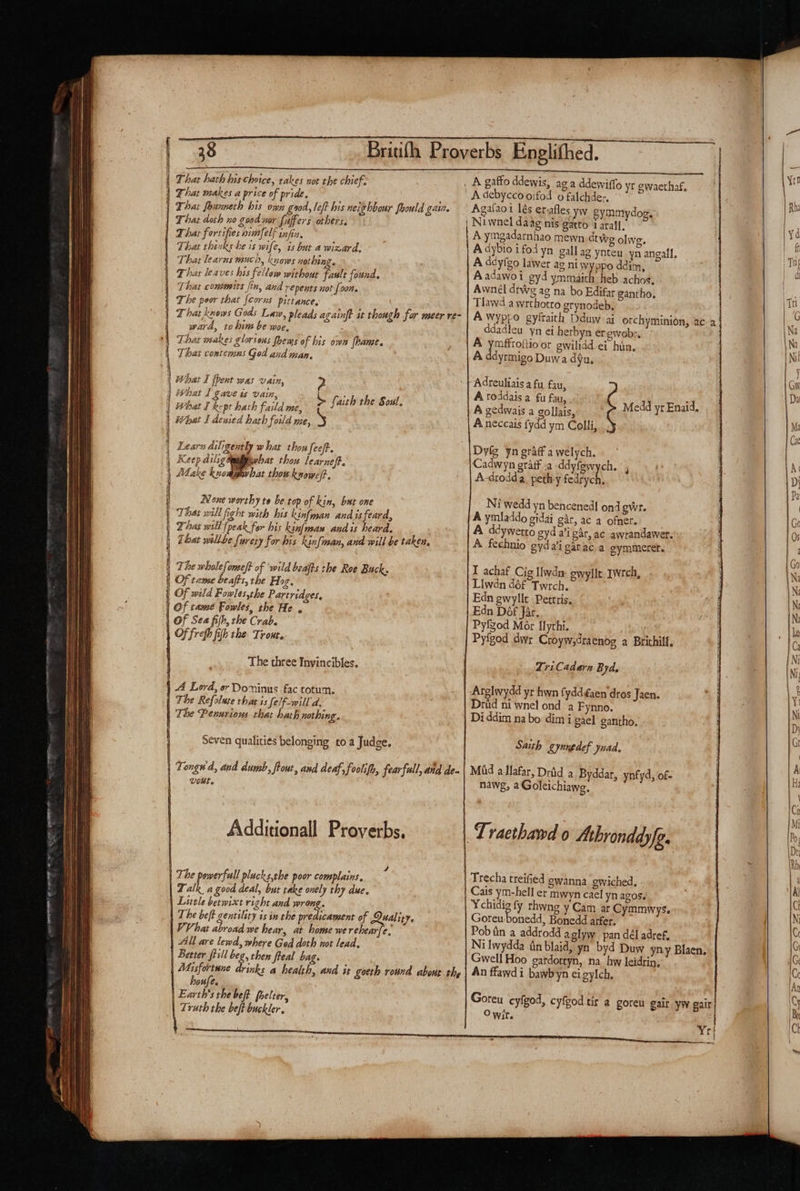 38 British Proverbs Englished.
That hath his choice, takes not the chief.
That makes a price of pride.
That shunneth his own good, lest his neighbour should gain.
That doth no good nor suffers others.
That fortifies himself in sin.
That thinks he is wise, is but a wizard.
That learns much, knows nothing.
That leaves his fellow without fault found.
That commits sin, and repents not soon.
The poor that scorns pittance.
That knows Gods Law, pleads against it though for meer re-
ward, to him be woe.
That makes glorious shews of his own shame.
That contemns God and man.
What I spent was vain,
What I gave is vain,
What I kept hath faild me,
What I denied hath foild me,
faith the Soul.
Learn diligently what thou seest.
Keep what thou learnest.
Make what thou knowest.
None worthy to be top of kin, but one
That will fight with his kinsman and is feard,
That will speak for his kinsman and is heard.
That will be surety for his kinsman, and will be taken.
The wholesomest of wild beasts the Roe Buck.
Of tame beasts, the Hog.
Of wild Fowles, the Partridges.
Of tame Fowles, the He .
Of Sea fish, the Crab.
Of fresh fish the Trout.
The three Invincibles.
A Lord, or Dominus fac totum.
The Resolute that is self-will'd.
The Penurious that hath nothing.
Seven qualities belonging to a Judge.
Tongu'd, and dumb, stout, and deaf, foolish, fearfull, and de-
vout.
Additionall Proverbs.
The powerfull plucks, the poor complains.
Talk a good deal, but take onely thy due.
Little betwixt right and wrong.
The best gentility is in the predicament of Quality.
VVhat abroad we hear, at home we rehearse.
All are lewd, where God doth not lead.
Better still beg, then steal bag.
Misfortune drinks a health, and it goeth round about thy
house.
Earth's the best shelter,
Truth the best buckler.
A gaffo ddewis, ag a ddewisso yr gwaethaf.
A debycco oifod o falchder.
Agasao i lés er asles yw gymmydog.
Ni wnel daâg nis gatto i arall.
A ymgadarnhao mewn drŵg olwg.
A dybio i fod yn gall ag ynteu yn angall.
A ddysgo lawer ag ni wyppo ddim,
A adawo i gyd ymmaith heb achos.
A wnêl drŵg ag na bo Edifar gantho.
Tlawd a wrthotto grynodeb.
A wyppo gyfraith Dduw ai orchyminion, ac a
ddadleu yn ei herbyn er gwobr.
A ymffrostio or gwilidd ei hûn.
A ddyrmigo Duw a dŷn.
Adreuliais a fu fau,
A roddais a fu fau,
A gedwais a gollais,
A neccais sydd ym Colli,
Medd yr Enaid.
Dysg yn grâff a welych.
Cadwyn grâff a ddysgwych.
A drodda peth y fedrych.
Ni wedd yn bencenedl ond gŵr.
A ymladdo gidai gâr, ac a ofner.
A ddywetto gyd a'i gâr, ac awrandawer.
A fechnio gyd a'i gâr ac a gymmerer.
I achaf Cig llwdn gwyllt Iwrch,
Llwdn dôf Twrch.
Edn gwyllt Pettris.
Edn Dôf Jâr.
Pysgod Môr llythi.
Pysgod dwr Croyw, draenog a Brithill.
Tri Cadarn Byd.
Arglwydd yr hwn sydd faen dros Jaen.
Drûd ni wnel ond a Fynno.
Di ddim na bo dim i gael gantho.
Saith gynnedef ynad.
Mûd a llafar, Drûd a Byddar, ynfyd, of-
nawg, a Goleichiawg.
Traethawd o Athronddysg.
Trecha treisied gwanna gwiched.
Cais ym-hell er mwyn cael yn agos.
Ychidig sy rhwng y Cam ar Cymmwys.
Goreu bonedd, Bonedd arfer.
Pob ûn a addrodd aglyw pan dêl adref.
Ni lwydda ûn blaid, yn byd Duw yn y Blaen.
Gwell Hoo gardotryn, na hw leidrin.
An ffawd i bawb yn ei gylch.
Goreu cyfgod, cyfgod tir a goreu gair yw gair
o wir.
Yr